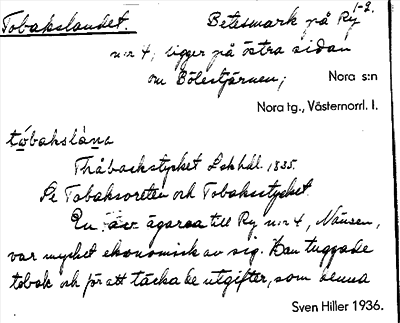 Tobakslandet. Betesmark på Ry 1-2.
n:r 4; ligger på östra sidan
om Bölestjärnen; Nora s:n
Nora tg., Västernorrl. l.
tobakslåna
Thåbackstycket Lskhdl. 1835.
Se Tobaksoreten och Tobaksstycket
En av ägarna till Ry n:r 4, Näusen,
var mycket ekonomisk av sig. Han tuggade
tobak och för att täcka de utgifter, som denna
Sven Hiller 1936.